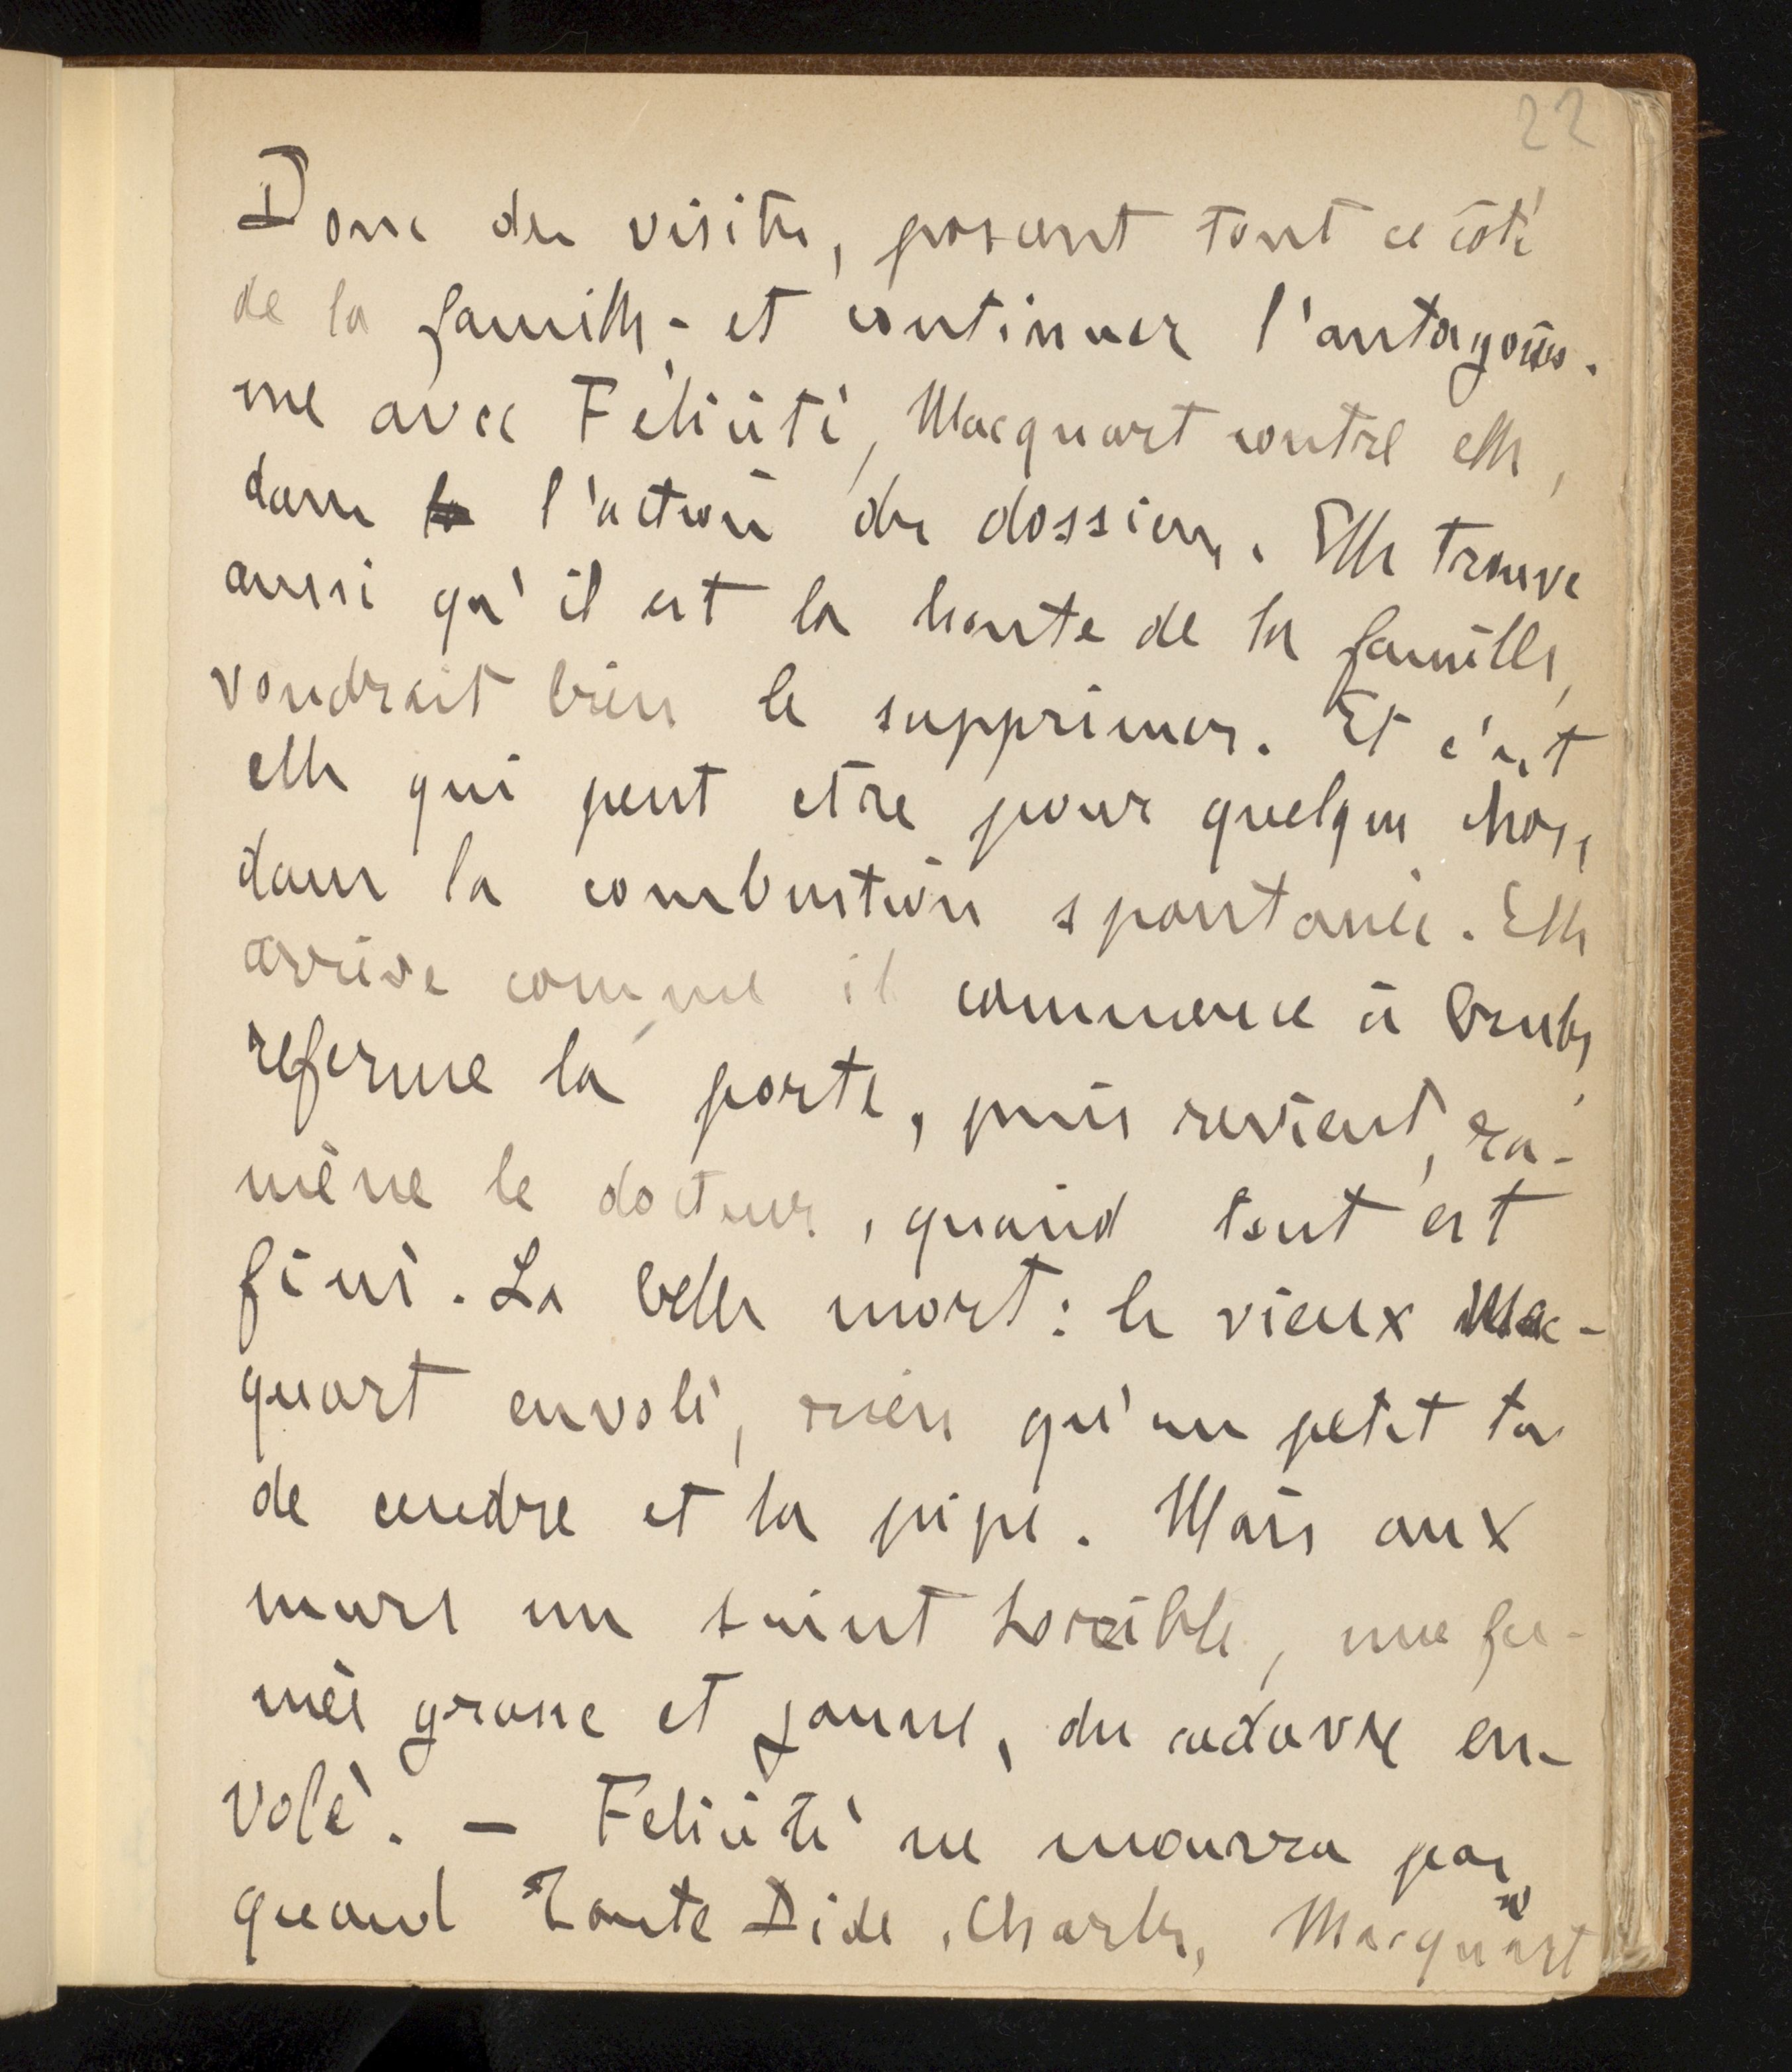 22
Donc des visites, posant tout ce côté
de la famille - et continuer l'antagonis-
me avec Félicité, Macquart contre elle,
dans l'action des dossiers. Elle trouve
aussi qu'il est la honte de la famille,
voudrait bien le supprimer. Et c'est
elle qui peut etre pour quelque chose
dans la combustion spontanée. Elle
arrive comme il commence à bruler,
referme la porte, puis revient, ra-
mène le docteur, quand tout est
fini. La belle mort : le vieux Mac-
quart envolé, rien qu'un petit tas
de cendre et la pipe. Mais aux
murs un suint horrible, une fu-
mée grasse et jaune, du cadavre en-
volé. — Felicité ne mourra pas
quand Tante Dide, Charles, Macquart